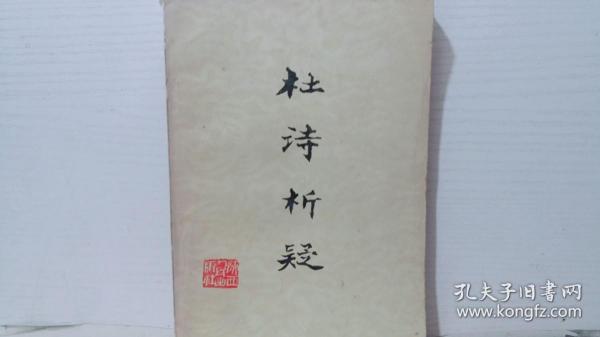 杜诗析疑
孔夫子旧書网
www.kongfz.com